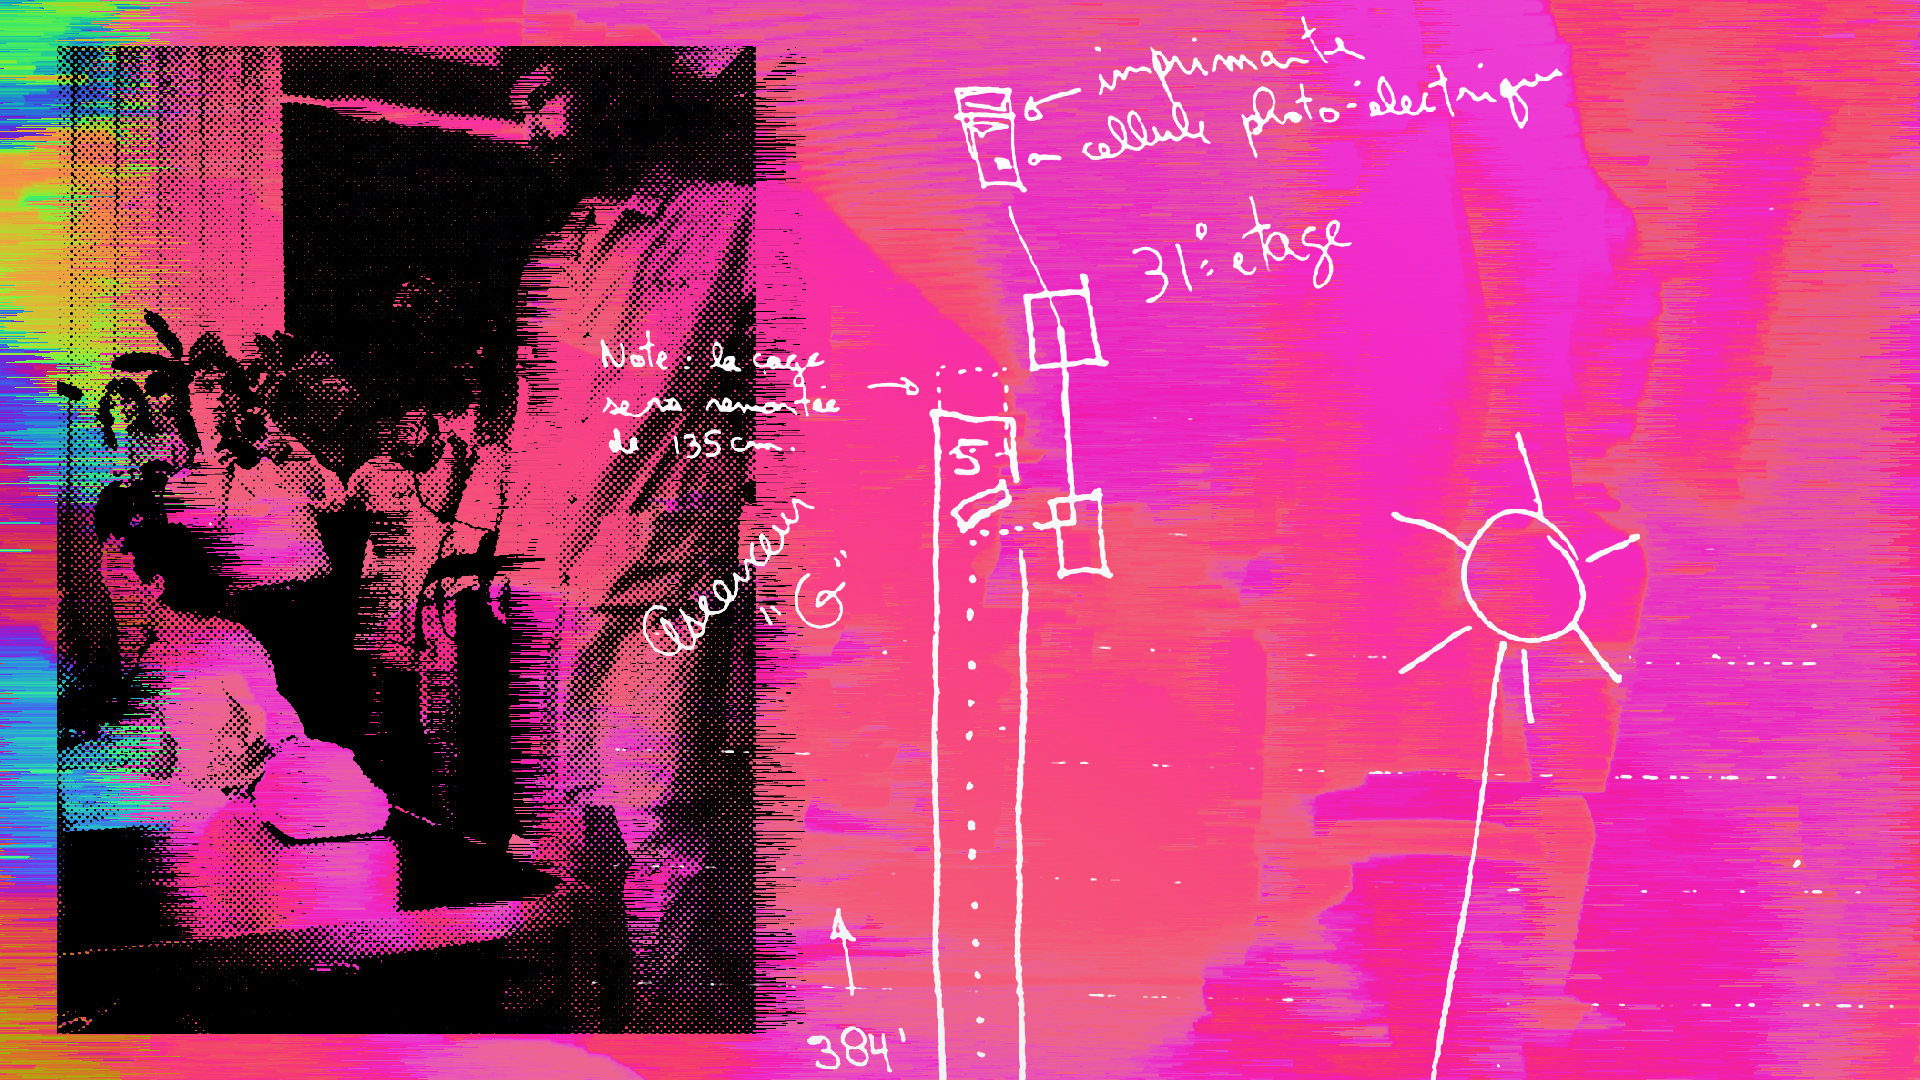 imprimante
cellule photo-électrique
31ième étage
Note : la cage
sera remontée
de 135 cm.
5
Ascenceur
"G"
384'